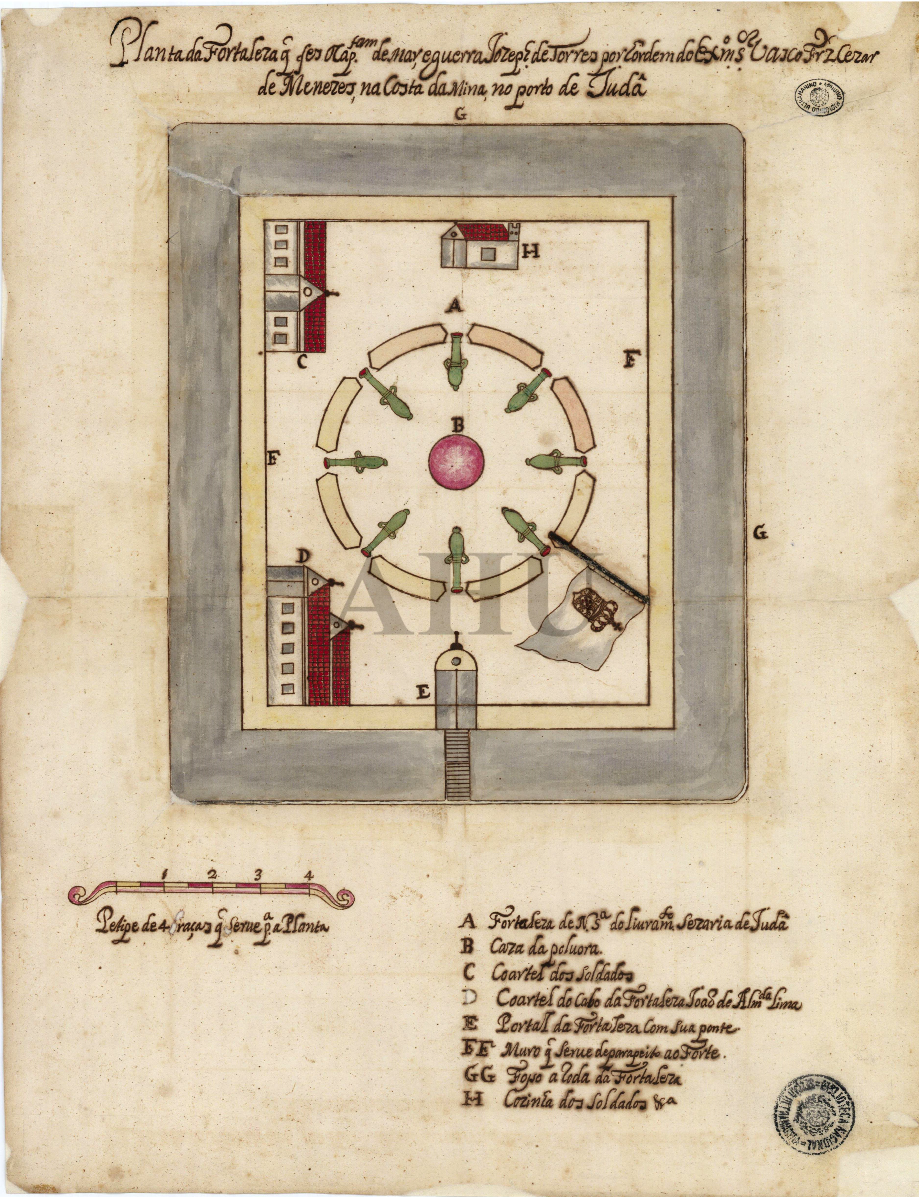 Planta da Fortaleza q̃ fes o Cap.tam de Mar, e guerra Jozeph de Torres por ordem do Ex.mo S.or Vasco Frz Cezar
de Menezes, na Costa da Mina, no porto de Judâ
G
H
A
C
F
B
F
G
D
AHU
E
1 2 3 4
Petipe de 4 braças q̃ serue p.a a Planta
A Fortaleza de N. S.a do liuram.to Sezaria de Judâ
B Caza da poluora.
C Coartel dos Soldados
D Coartel do Cabo da Fortaleza Joaõ de Alm.da Lima
E Portal da Fortaleza Com sua ponte
FF Muro q̃ serue de parapeito ao Forte.
GG Foso a toda da Fortaleza
H Cozinha dos Soldados &a